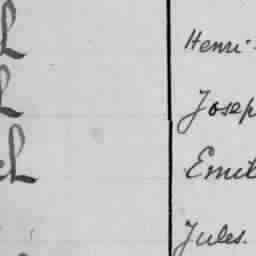 Henri
Josep
Emil
Jules.